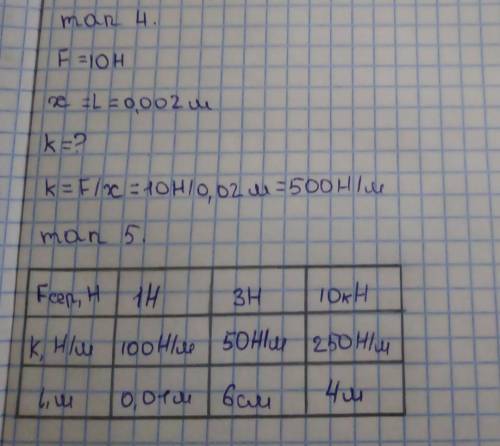 тап 4.
F=10Н
x=L=0,002м
k=?
k=F/x=10Н/0,02м=500Н/м
тап 5.
Fсер,Н 1Н 3Н 10кН
k,Н/м 100Н/м 50Н/м 250Н/м
l,м 0,01м 6см 4м